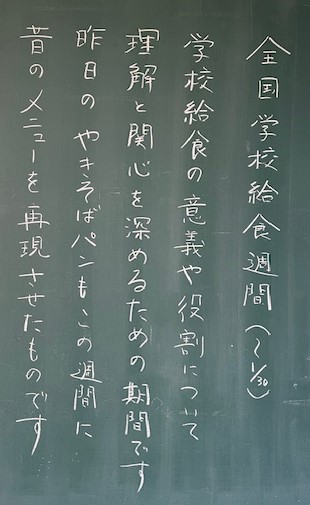 全国学校給食週間(〜1/30)
学校給食の意義や役割について
理解と関心を深めるための期間です
昨日のやきそばパンもこの週間に
昔のメニューを再現させたものです